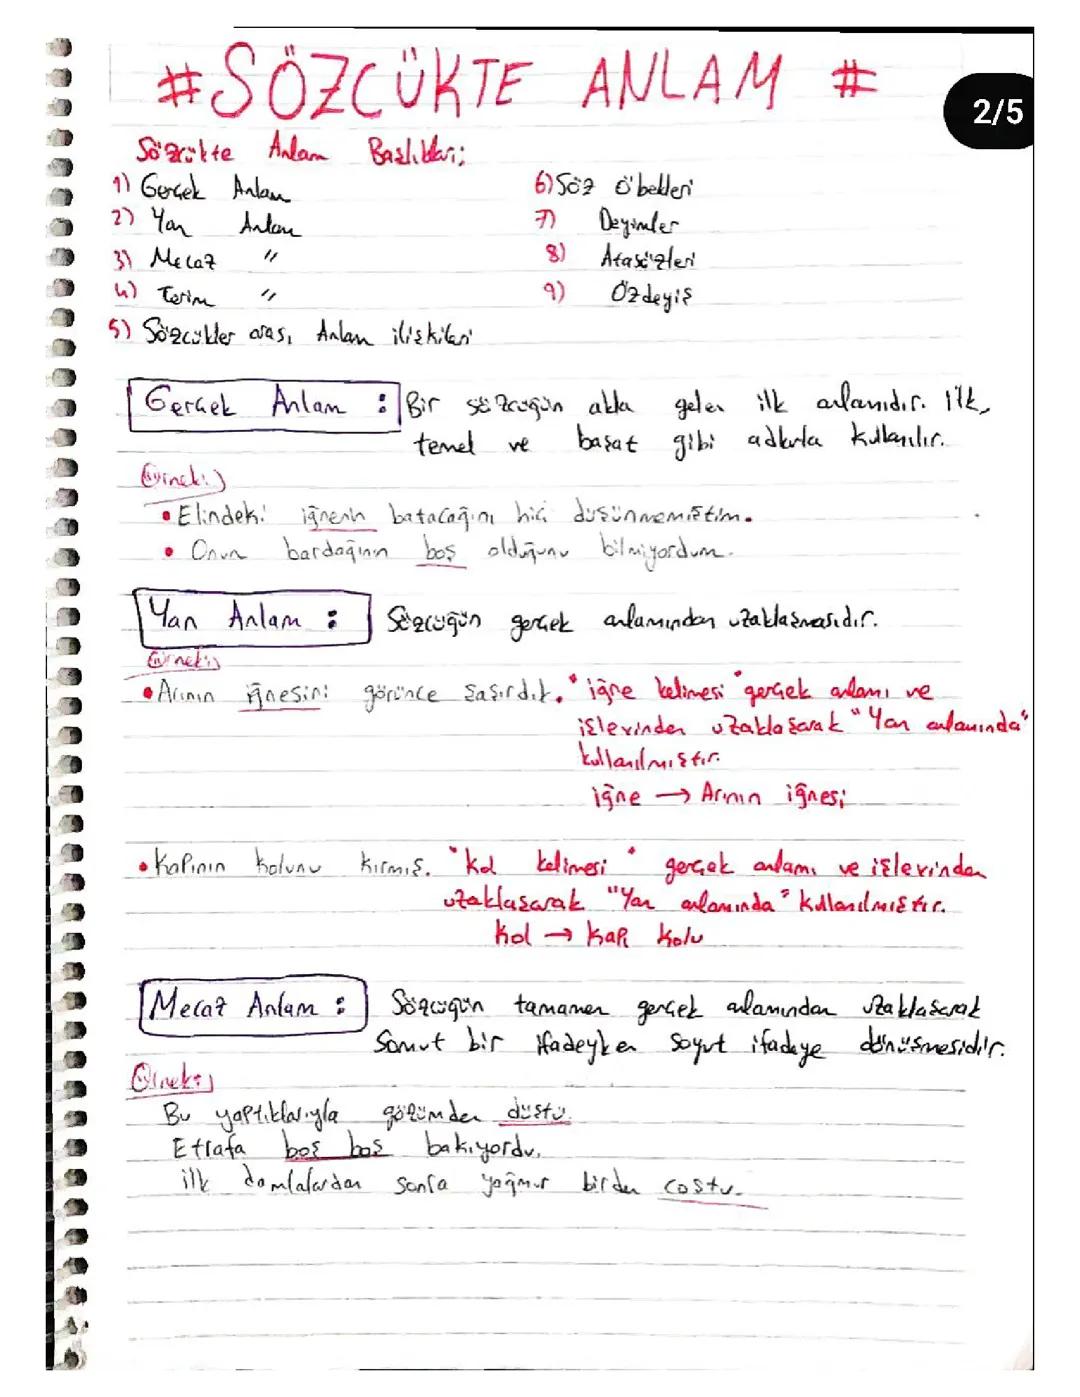 #SÖZCÜKTE ANLAM #
2/5
Sözcükte Anlam Başlıkları;
1) Gerçek Anlam
2) Yan Anlam
3) Mecaz "
4) Terim "
5) Sözcükler arası Anlam ilişkileri
6) Söz öbekleri
7) Deyimler
8) Atasözleri
9) Özdeyiş
Gerçek Anlam : Bir sözcüğün akla gelen ilk anlamıdır. İlk,
temel ve başat gibi adlarla kullanılır.
Örnek:)
• Elindeki iğnenin batacağını hiç düşünmemiştim.
• Onun bardağının boş olduğunu bilmiyordum.
Yan Anlam : Sözcüğün gerçek anlamından uzaklaşmasıdır.
Örnek:)
• Arının iğnesini görünce şaşırdık. "iğne kelimesi" gerçek anlamı ve
işlevinden uzaklaşarak "Yan anlamında"
kullanılmıştır.
iğne → Arının iğnesi
• Kapının kolunu kırmış. "Kol kelimesi" gerçek anlamı ve işlevinden
uzaklaşarak "Yan anlamında" kullanılmıştır.
Kol → Kapı Kolu
Mecaz Anlam : Sözcüğün tamamen gerçek anlamından uzaklaşarak
Somut bir ifadeyken soyut ifadeye dönüşmesidir.
Örnek:)
Bu yaptıklarıyla gözümden düştü.
Etrafa boş boş bakıyordu.
ilk damlalardan sonra yağmur birden coştu.